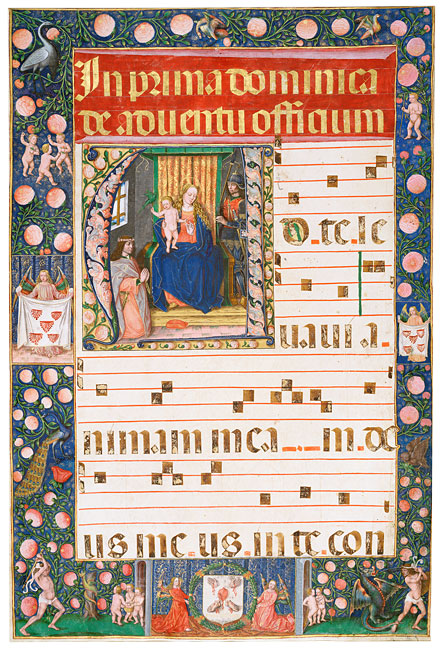 In prima dominica
de aduentu officium
AD. te. le
uaui a.
nimam mea . . m. de
us me. us. in te. con